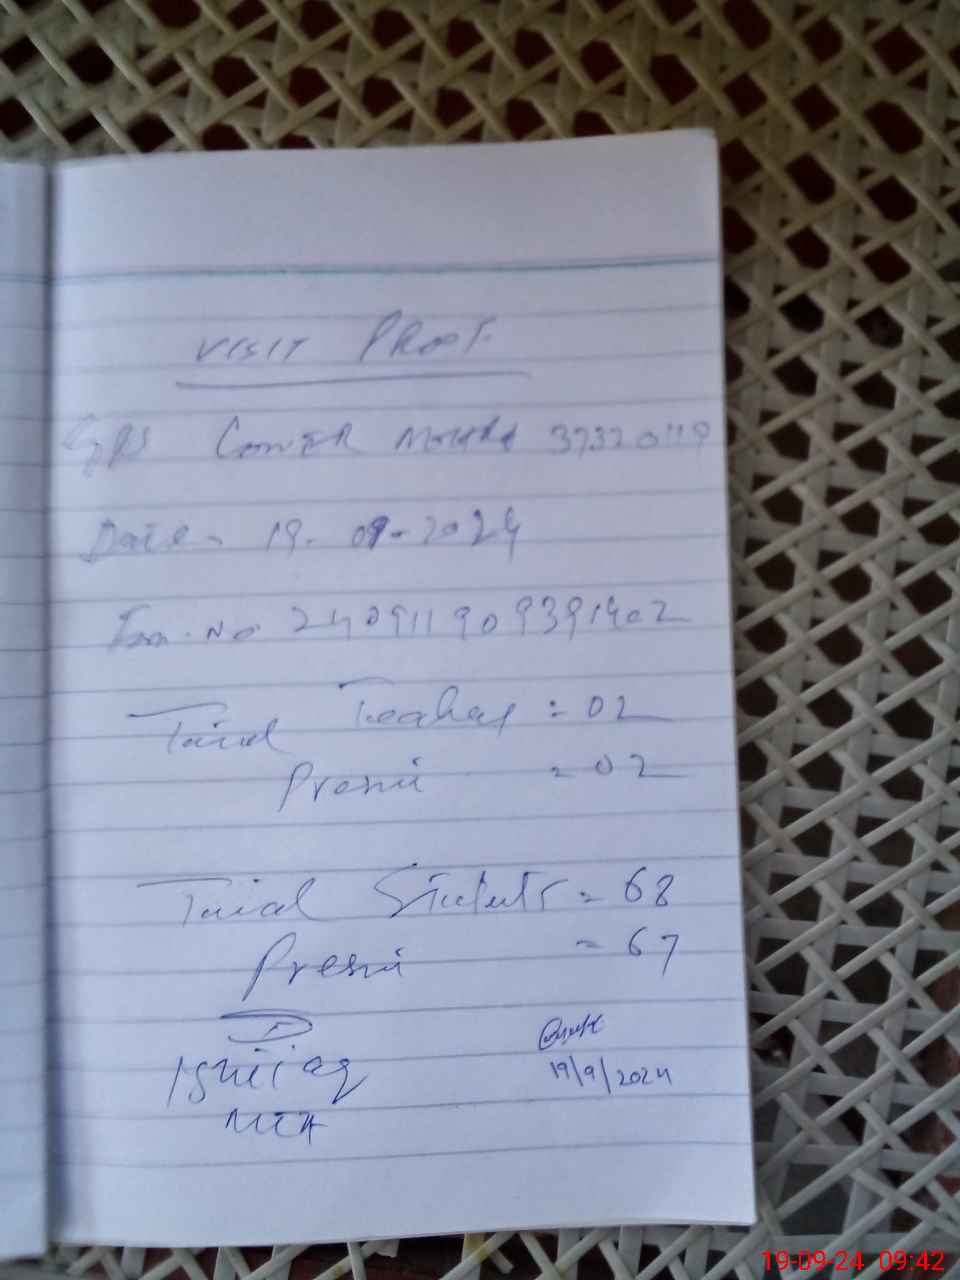 VISIT PROOF.
GPS CONTER MOHRA 37320119
Date. 19. 09-2024
No 240911909391402
Total Teachers = 02
Present = 02
Total Students = 68
Present = 67
19/9/2024
19-09-24 09:42